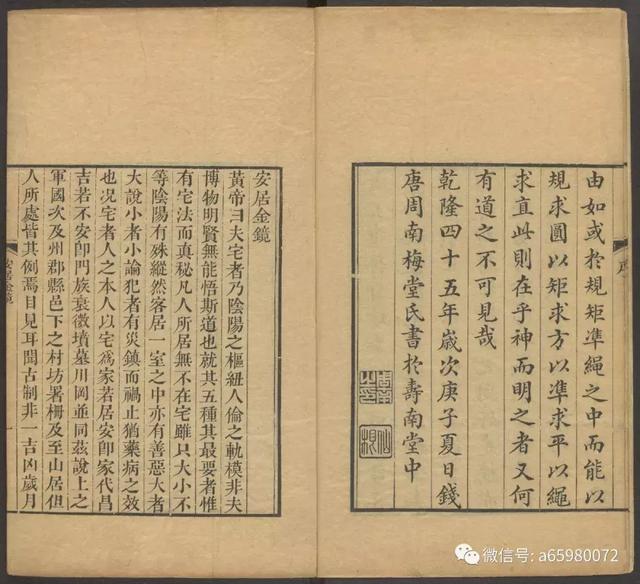 由如或於規矩凖繩之中而能以
規求圓以矩求方以凖求平以繩
求直此則在乎神而明之者又何
有道之不可見哉
乾隆四十五年歲次庚子夏日錢
唐周南梅堂氏書於壽南堂中
安居金鏡
黃帝曰夫宅者乃陰陽之樞紐人倫之軌模非夫
博物明賢無能悟斯道也就其五種其最要者惟
有宅法而真秘凡人所居無不在宅雖只大小不
等陰陽有殊縱然客居一室之中亦有善惡大者
大說小者小論犯者有災鎮而禍止猶藥病之效
也况宅者人之本人以宅爲家若居安卽家代昌
吉若不安卽門族衰微墳墓川岡並同茲說上之
軍國次及州郡縣邑下之村坊署柵及至山居但
人所處皆其例焉目見耳聞古制非一吉凶歲月
安居金鏡
一
微信号: a65980072